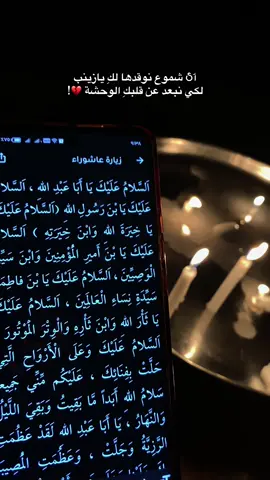 ٥أ شموع نوقدها لكِ يازينب
لكي نبعد عن قلبكِ الوحشة 💔!
زيارة عاشوراء
اَلسَّلامُ عَلَيْكَ يَا أَبَا عَبْدِ الله ، اَلسَّلا
عَلَيْكَ يَا بْنَ رَسُولِ الله (اَلسَّلامُ عَلَيْكَ
يَا خِيَرَةَ الله وَابْنَ خِيَرَتِهِ ) اَلسَّلامُ
عَلَيْكَ يَا بْنَ أَمِيرِ الْمُؤْمِنِينَ وَابْنَ سَيِّدِ
الْوَصِيِّينَ ، اَلسَّلامُ عَلَيْكَ يَا بْنَ فاطِمَةَ
سَيِّدَةِ نِسَاءِ الْعَالَمِينَ ، اَلسَّلامُ عَلَيْكَ
يَا ثَارَ الله وَابْنَ ثَارِهِ وَالْوِتْرَ الْمَوْتُورَ
اَلسَّلامُ عَلَيْكَ وَعَلَى الْأَرْوَاحِ الَّتِي
حَلَّتْ بِفِنَائِكَ ، عَلَيْكُم مِّنِّي جَمِيعًا
سَلامُ الله أَبَداً مَّا بَقِيتُ وَبَقِيَ اللَّيْلُ
وَالنَّهَارُ ، يَا أَبَا عَبْدِ الله لَقَدْ عَظُمَتِ
الرَّزِيَّةُ وَجَلَّتْ ، وَعَظُمَتِ الْمُصِيبَ